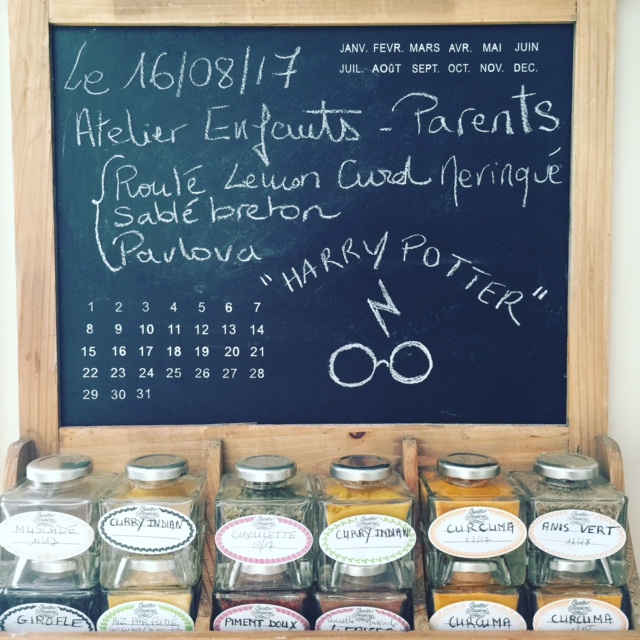 Le 16/08/17
JANV. FEVR. MARS AVR. MAI JUIN
JUIL. AOÛT SEPT. OCT. NOV. DEC.
Atelier Enfants - Parents
Roulé Lemon Curd Meringué
Sablé breton
Pavlova
"HARRY POTTER"
1 2 3 4 5 6 7
8 9 10 11 12 13 14
15 16 17 18 19 20 21
22 23 24 25 26 27 28
29 30 31
MUSCADE
CURRY INDIAN
CIBOULETTE
CURRY INDIAN
CURCUMA
ANIS VERT
GIROFLE
PIMENT DOUX
CURCUMA
CURCUMA